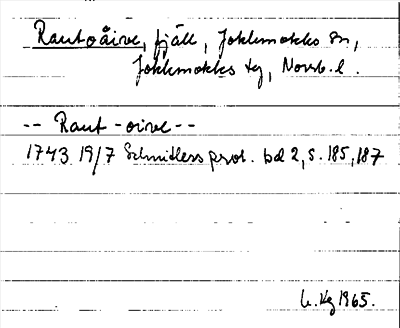 Rautoåive, fjäll, Jokkmokks sn,
Jokkmokks tg, Norrb. l.
-- Raut-oive --
1743 19/7 Schnitlers prot. bd 2, s. 185, 187
1965.